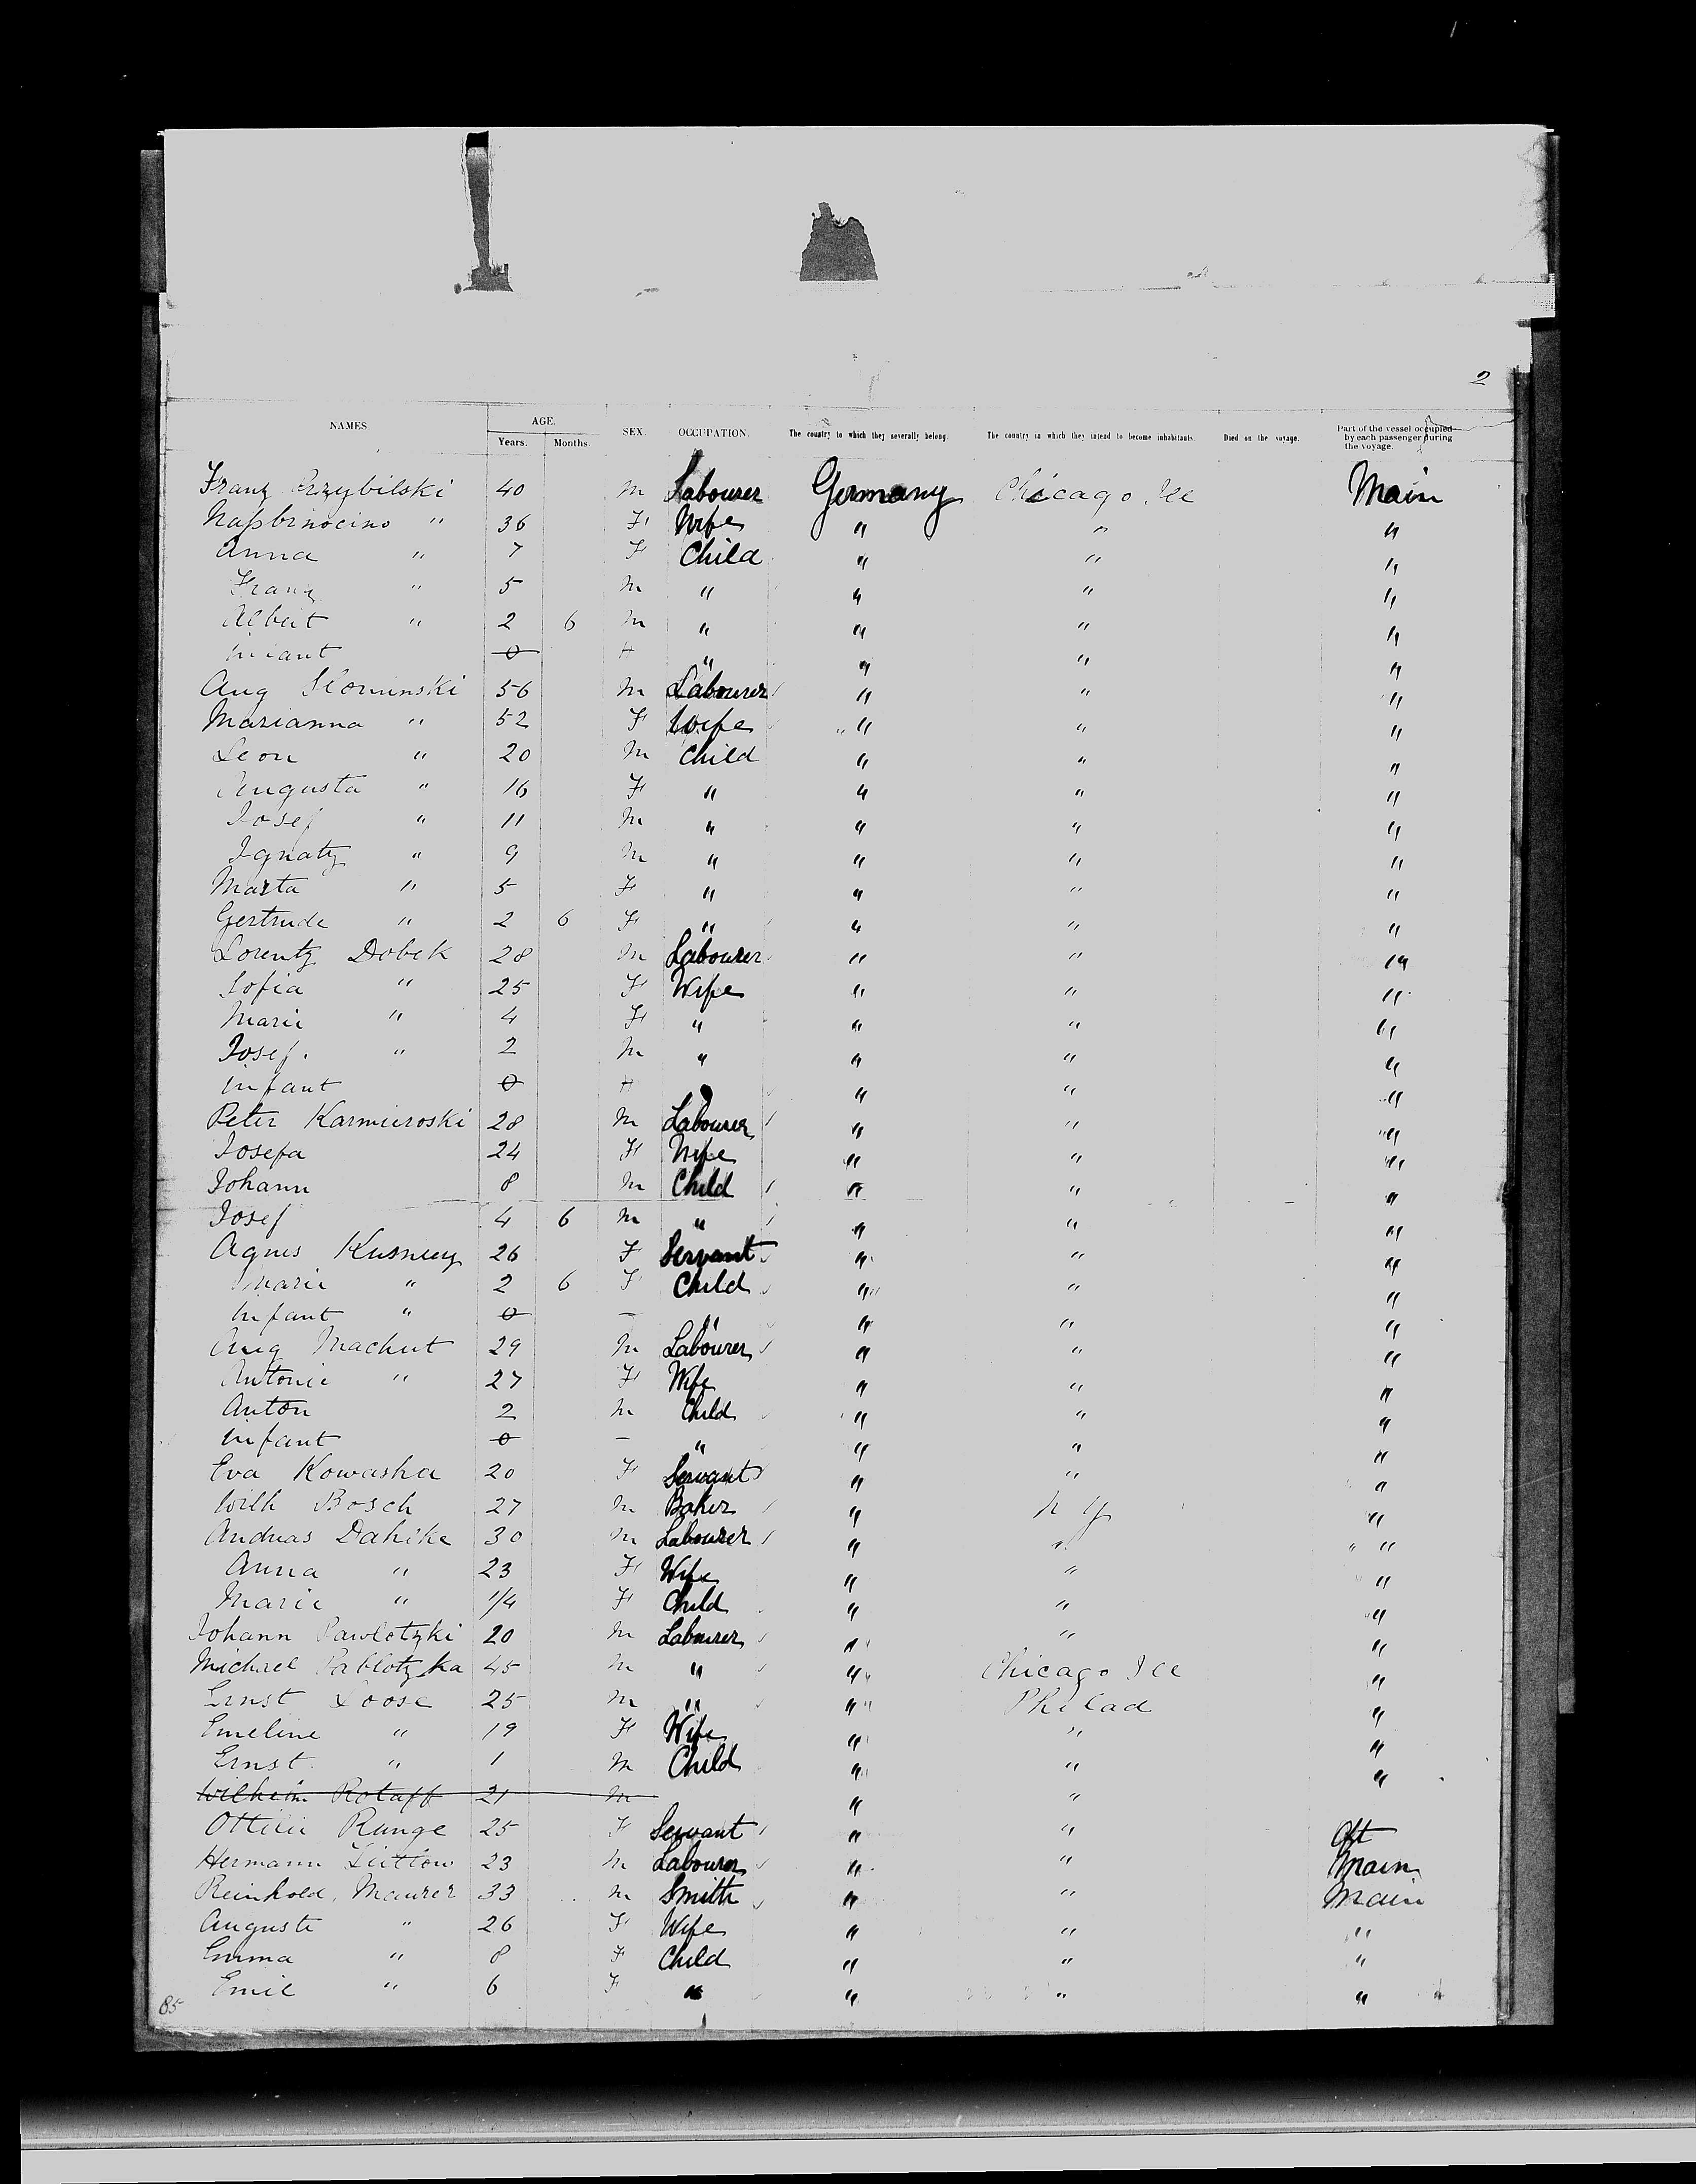 2
NAMES. AGE. Years. Months. SEX. OCCUPATION. The country to which they severally belong. The country in which they intend to become inhabitants. Died on the voyage. Part of the vessel occupied by each passenger during the voyage.
Franz Przybilski 40 m Labourer Germany Chicago Ill Main
" 36 F Wife " " "
Anna " 7 F Child " " "
Franz " 5 m " " " "
Albert " 2 6 m " " " "
Infant 0 " " " "
Aug Slominski 56 m Labourer " " "
Marianna " 52 F Wife " " "
Leon " 20 m Child " " "
Augusta " 16 F " " " "
Josef " 11 m " " " "
Ignatz " 9 m " " " "
Marta " 5 F " " " "
Gertrude " 2 6 F " " " "
Lorentz Dobek 28 m Labourer " " "
Sofia " 25 F Wife " " "
Marie " 4 F " " " "
Josef " 2 m " " " "
infant 0 " " "
Peter Karmieroski 28 m Labourer " " "
Josefa 24 F Wife " " "
Johann 8 m Child " " "
Josef 4 6 m " " " "
Agnes 26 F Servant " " "
Marie " 2 6 F Child " " "
Infant " 0 – " " " "
Aug Machut 29 m Labourer " " "
Antonie " 27 F Wife " " "
Anton 2 m Child " " "
infant 0 – " " " "
Eva Kowasha 20 F Servant " " "
Wilh Bosch 27 m Baker " N Y "
Andreas Dahlke 30 m Labourer " " "
Anna " 23 F Wife " " "
Marie " 1/4 F Child " " "
Johann Pawlotzki 20 m Labourer " " "
Michael Pablotzka 45 m " " Chicago Ill "
Ernst Loose 25 m " " Philad "
Emeline " 19 F Wife " " "
Ernst " 1 m Child " " "
Wilhelm Rotaff 21 m " "
Ottilie Runge 25 F Servant " " Aft
Hermann Lüttow 23 m Labourer " " Main
Reinhold Maurer 33 m Smith " " Main
Auguste " 26 F Wife " " "
Emma " 8 F Child " " "
Emil " 6 F " " " "
85